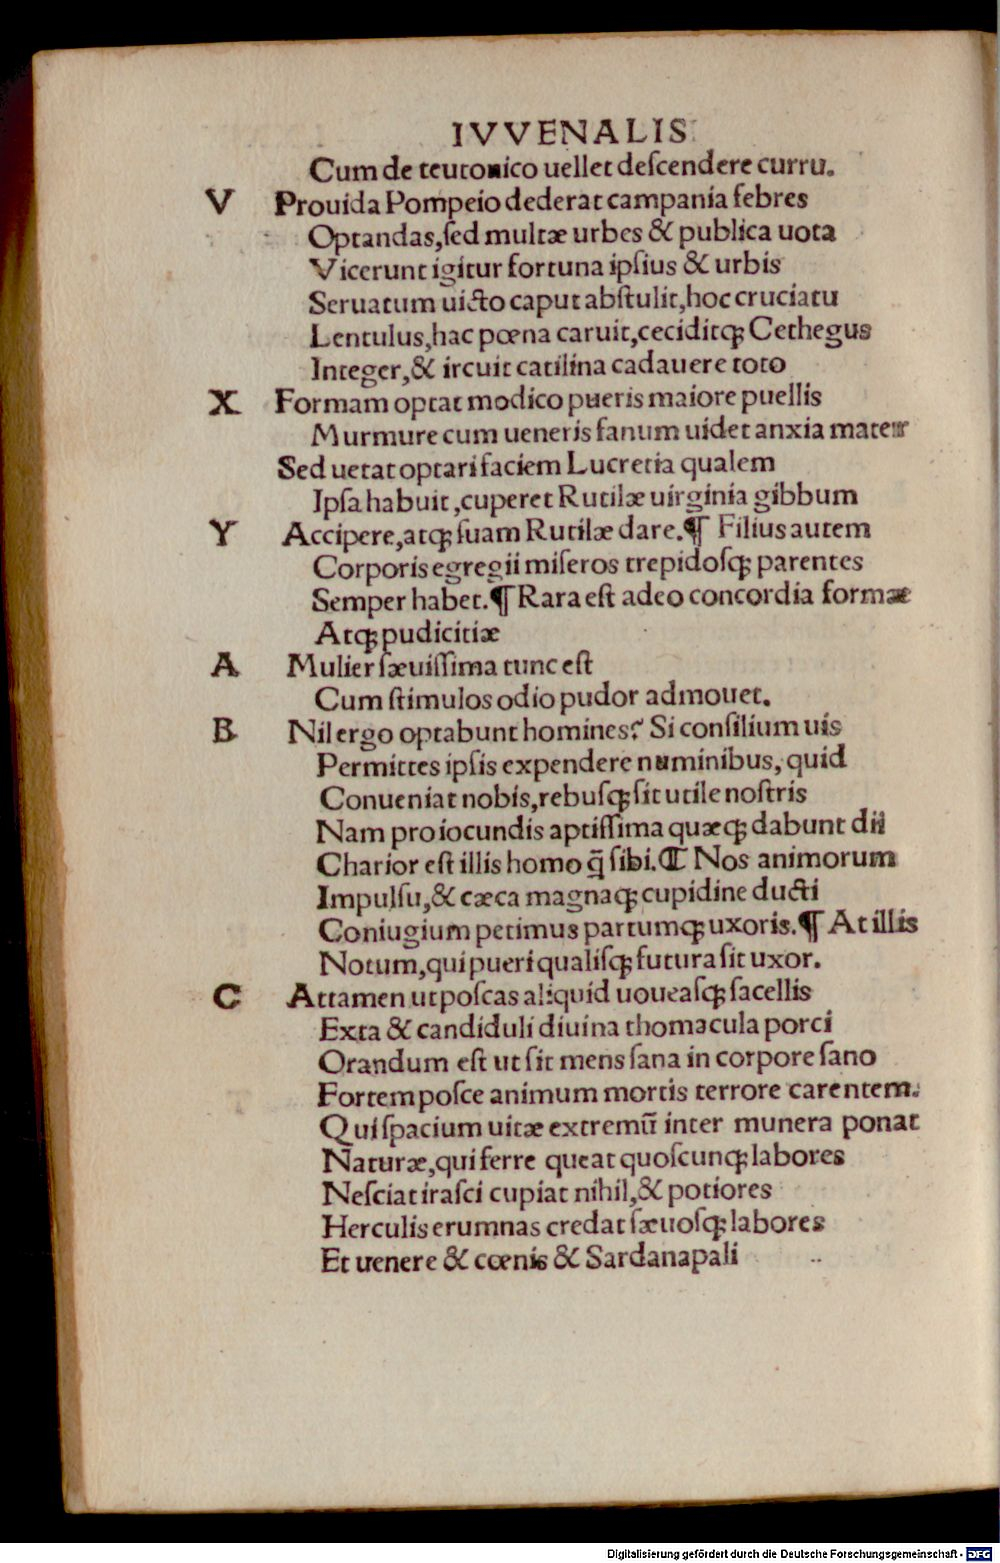 IVVENALIS
Cum de teutonico uellet descendere curru.
V Prouida Pompeio dederat campania febres
Optandas,sed multæ urbes & publica uota
Vicerunt igitur fortuna ipsius & urbis
Seruatum uicto caput abstulit,hoc cruciatu
Lentulus,hac pœna caruit,ceciditqꝫ Cethegus
Integer,& ircuit catilina cadauere toto
X Formam optat modico pueris maiore puellis
Murmure cum ueneris fanum uidet anxia mater
Sed uetat optari faciem Lucretia qualem
Ipsa habuit,cuperet Rutilæ uirginia gibbum
Y Accipere,atqꝫ suam Rutilæ dare.¶ Filius autem
Corporis egregii miseros trepidosqꝫ parentes
Semper habet.¶ Rara est adeo concordia formæ
Atqꝫ pudicitiæ
A Mulier sæuissima tunc est
Cum stimulos odio pudor admouet.
B Nil ergo optabunt homines? Si consilium uis
Permittes ipsis expendere numinibus, quid
Conueniat nobis,rebusqꝫ sit utile nostris
Nam pro iocundis aptissima quæqꝫ dabunt dii
Charior est illis homo q̄ sibi.¶ Nos animorum
Impulsu,& cæca magnaqꝫ cupidine ducti
Coniugium petimus partumqꝫ uxoris.¶ At illis
Notum,qui pueri qualisqꝫ futura sit uxor.
C Attamen ut poscas aliquid uoueasqꝫ sacellis
Exta & candiduli diuina thomacula porci
Orandum est ut sit mens sana in corpore sano
Fortem posce animum mortis terrore carentem.
Qui spacium uitæ extremū inter munera ponat
Naturæ,qui ferre queat quoscunqꝫ labores
Nesciat irasci cupiat nihil,& potiores
Herculis erumnas credat sæuosqꝫ labores
Et uenere & cœnis & Sardanapali
Digitalisierung gefördert durch die Deutsche Forschungsgemeinschaft - DFG